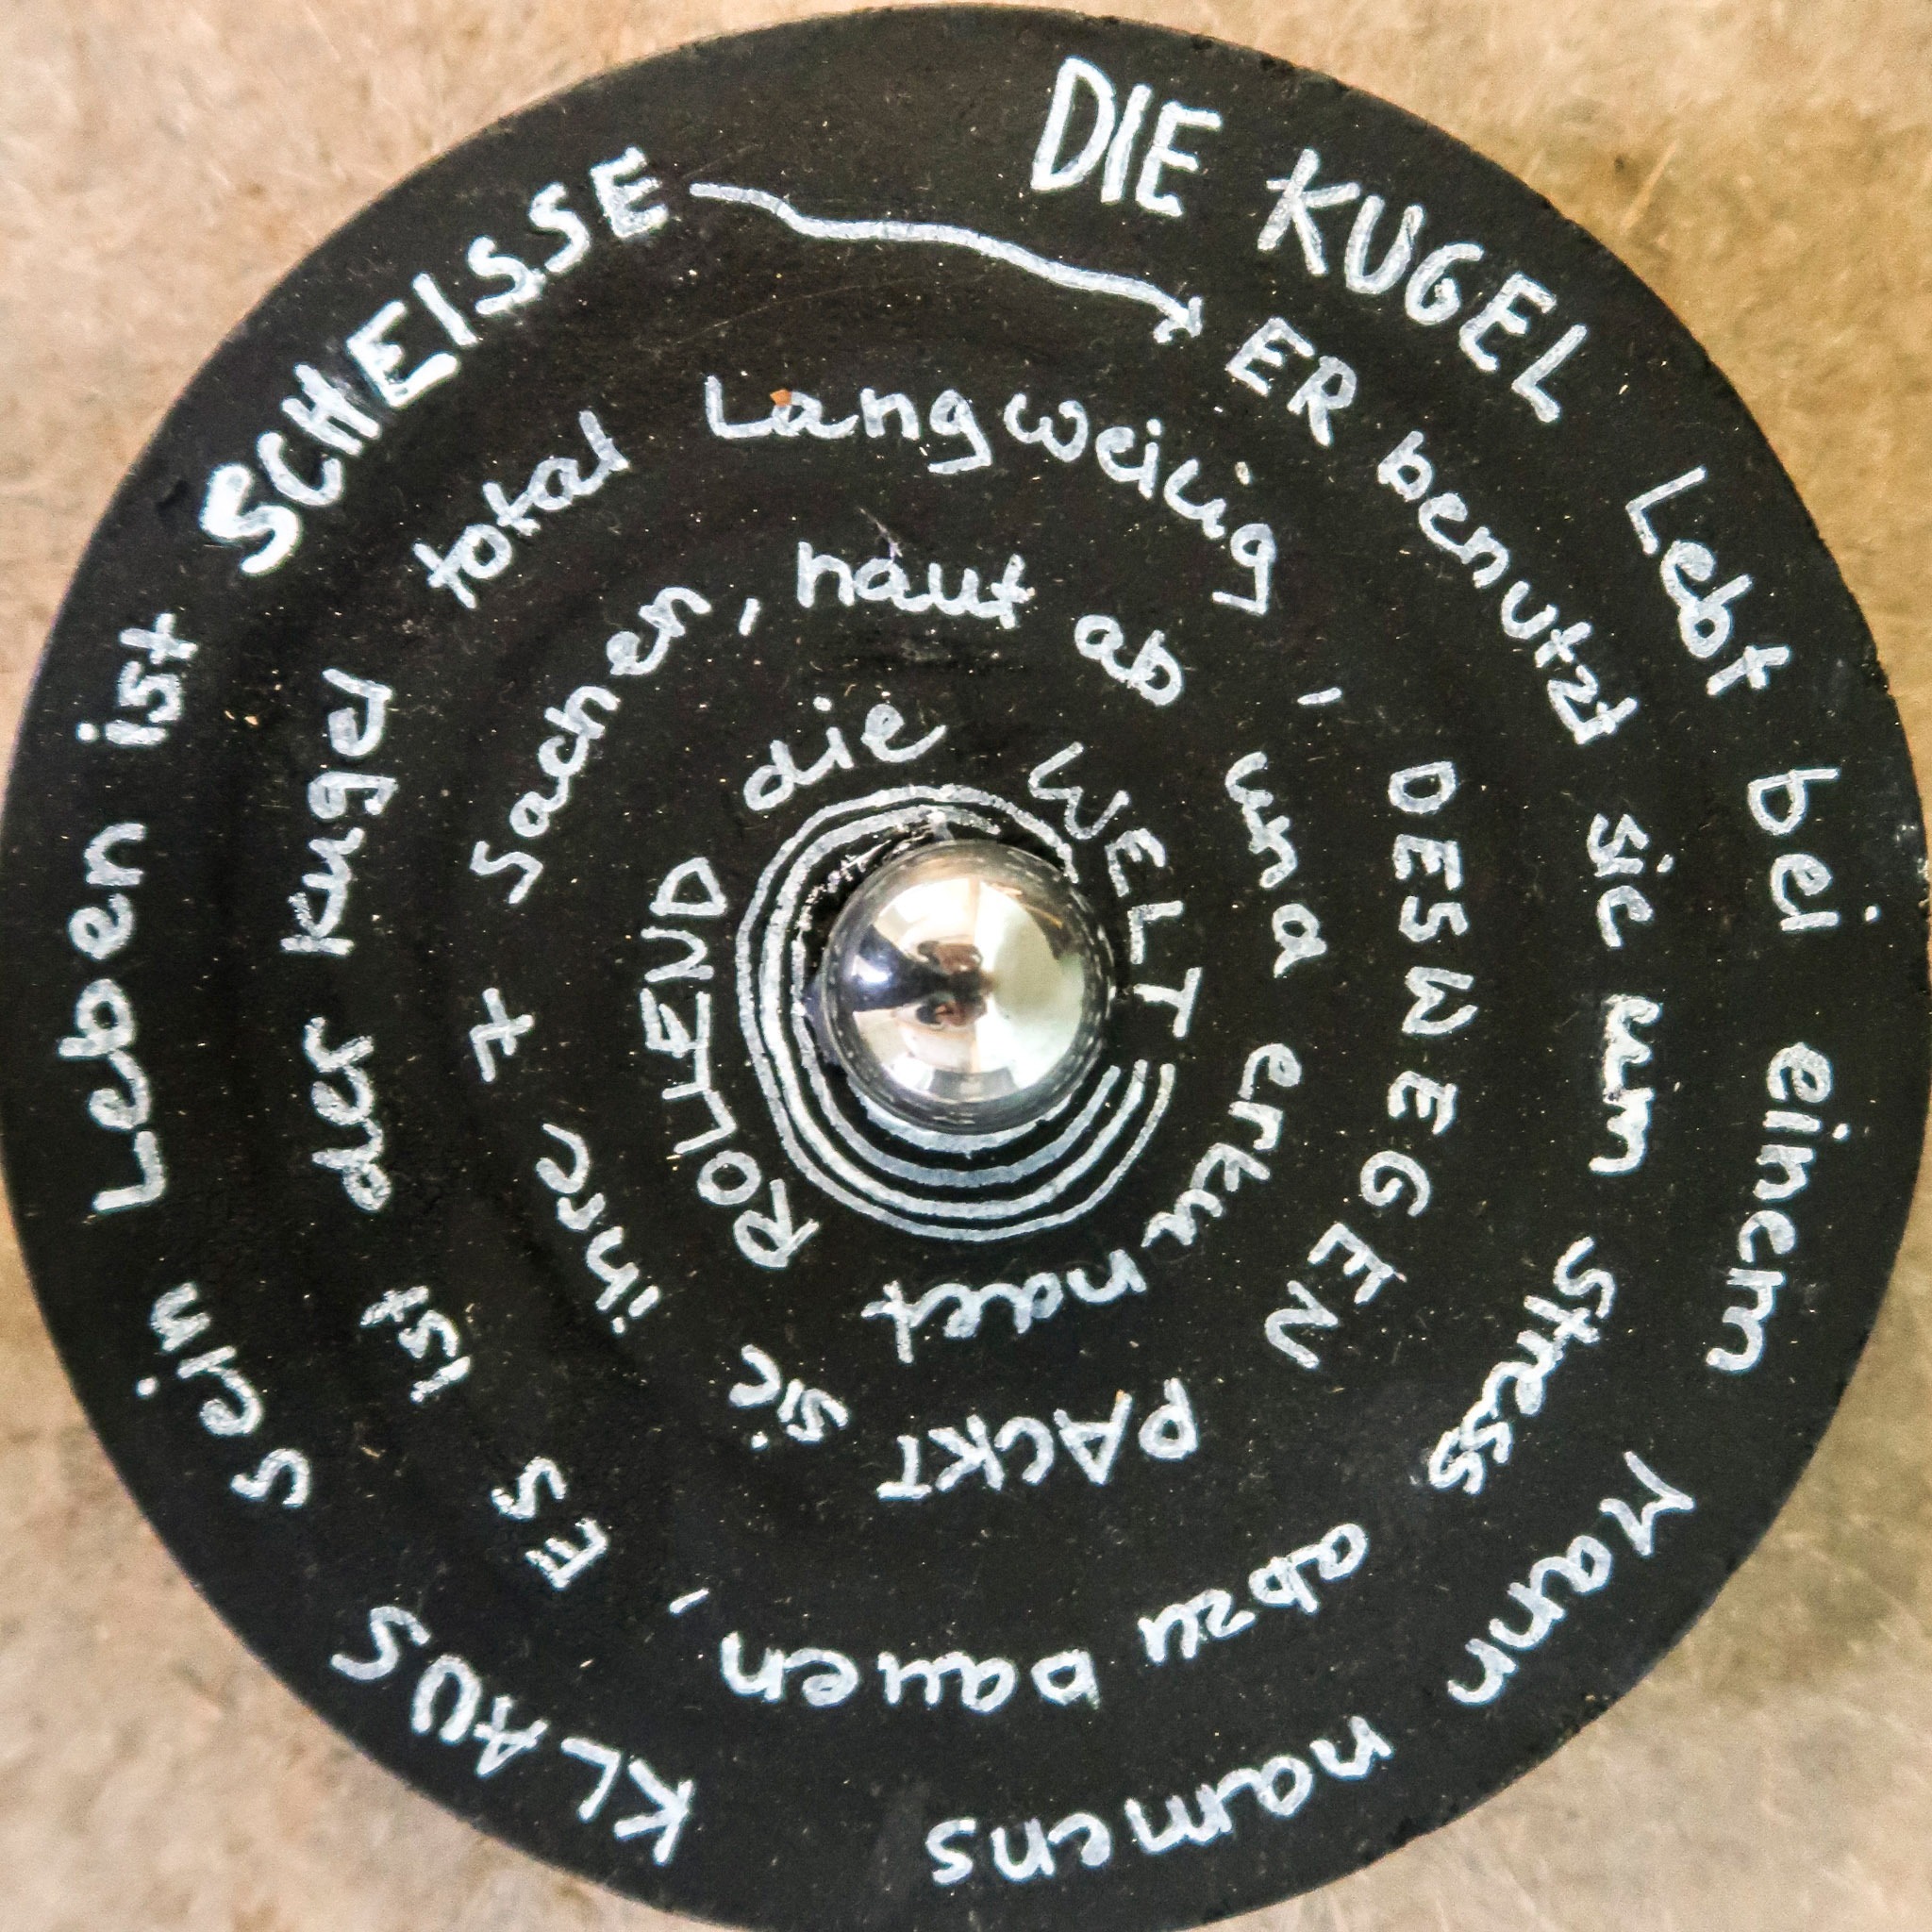 DIE KUGEL Lebt bei einem Mann namens KLAUS sein Leben ist SCHEISSE
ER benutzt sie um stress abzu bauen, ES ist der Kugel total Langweilig,
DESWEGEN PACKT sie ihre 7 Sachen, haut ab
und erkundet ROLLEND die WELT